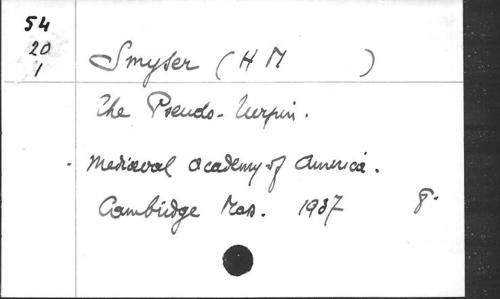 54
20
1
Smyser (H M )
The Pseudo-Turpin.
Mediæval Academy of America.
Cambridge Mas. 1937 8.